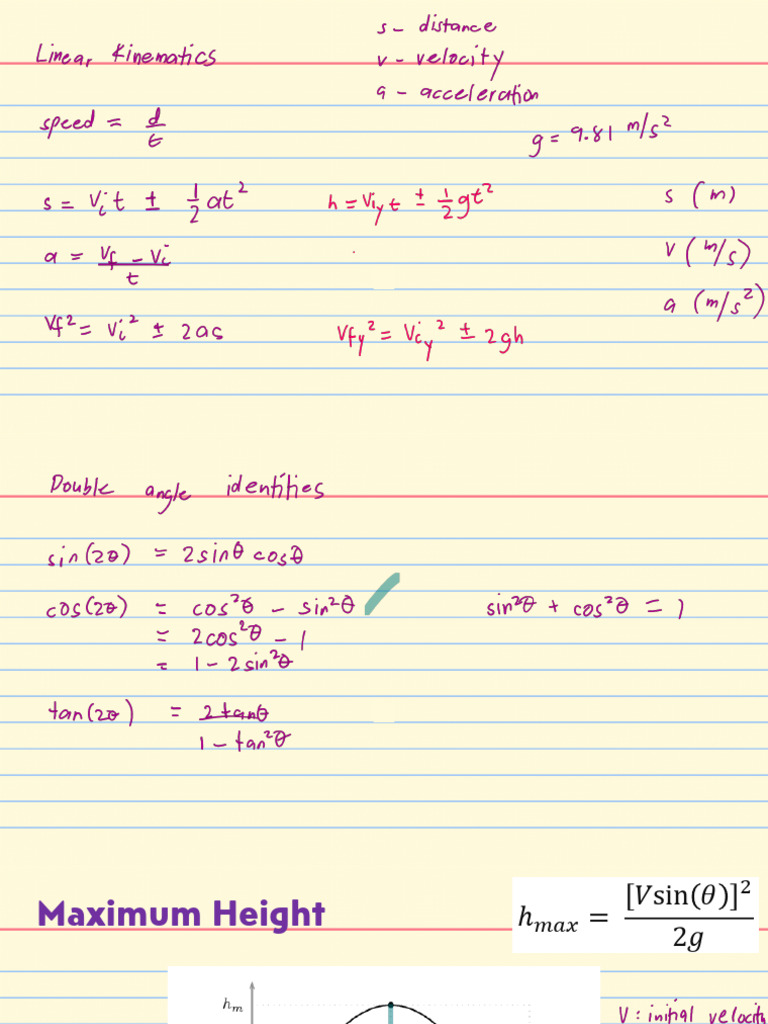 s - distance
Linear Kinematics
v - velocity
a - acceleration
speed = d/t
g = 9.81 m/s²
s = Vᵢt ± 1/2 at²
h = Viy t ± 1/2 gt²
s (m)
a = Vf - Vi / t
v (m/s)
a (m/s²)
Vf² = Vi² ± 2as
Vfy² = Viy² ± 2gh
Double angle identities
sin(2θ) = 2sinθ cosθ
cos(2θ) = cos²θ - sin²θ
sin²θ + cos²θ = 1
= 2cos²θ - 1
= 1 - 2sin²θ
tan(2θ) = 2tanθ / 1 - tan²θ
Maximum Height
hmax = [Vsin(θ)]² / 2g
hm
V: initial velocity